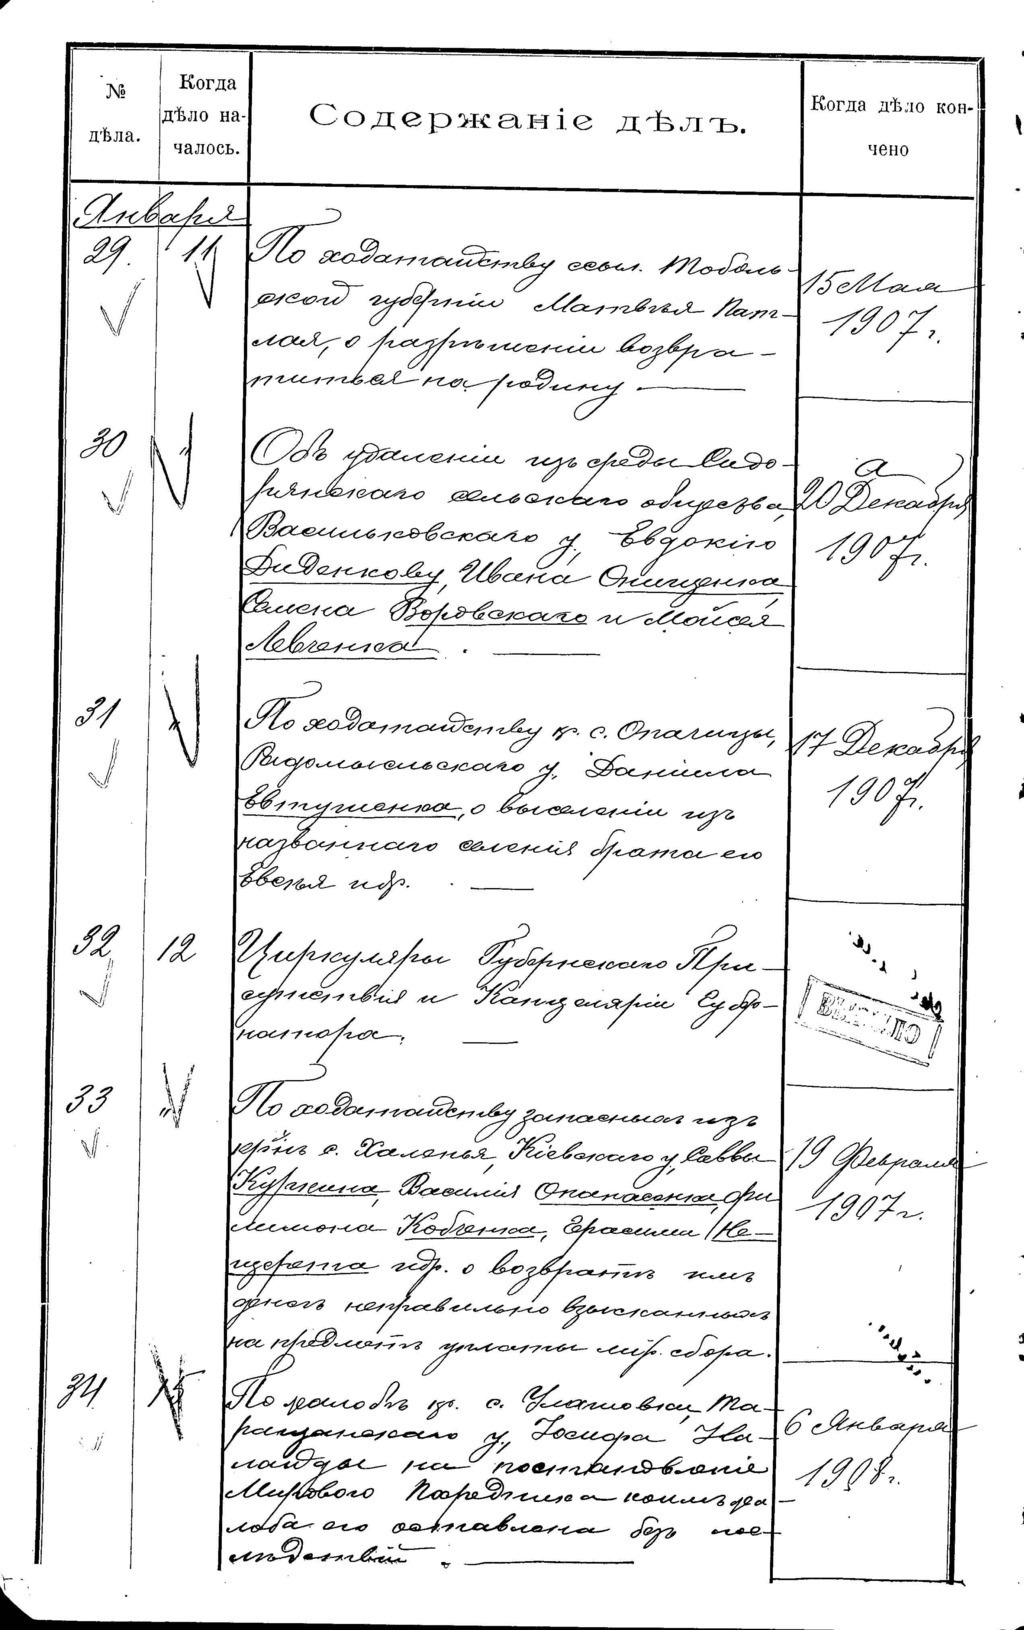 № дѣла.
Когда дѣло началось.
Содержаніе дѣлъ.
Когда дѣло кончено
Января
29. 11
По ходатайству ссыл. Тоболь-
ской губерніи Матвѣя Пат-
лая, о разрѣшеніи возвра-
титься на родину
15 Мая
1907 г.
30 "
Объ удаленіи изъ среды Сидо-
рянскаго сельскаго общества,
Васильковскаго у, Евдокію
Диденкову, Ивана Онищенка,
Семена Воровскаго и Мойсея
Левченка.
20 Декабря
1907 г.
31 "
По ходатайству кр. с. Опачицы,
Радомысльскаго у, Даніила
Евтушенка, о выселеніи изъ
названнаго селенія брата его
Евсѣя и др.
17 Декабря
1907 г.
32 12
Циркуляры Губернскаго При-
сутствія и Канцеляріи Губер-
натора.
ВЫБЫЛО
33 "
По ходатайству запасныхъ изъ
кр-нъ с. Халепья, Кіевскаго у, Саввы
Василія Опанасенка, Фи
лимона Кобченка, Герасима Не-
щерета и др. о возвратѣ имъ
денегъ неправильно взысканныхъ
на предметъ уплаты мір. сбора.
19 Февраля
1907 г.
34 15
По жалобѣ кр. с. Улашовки, Та-
ращанскаго у., Іосифа На-
на постановленіе
Мирового Посредника коимъ жа-
лоба его оставлена безъ пос-
лѣдствій.
6 Января
1908 г.